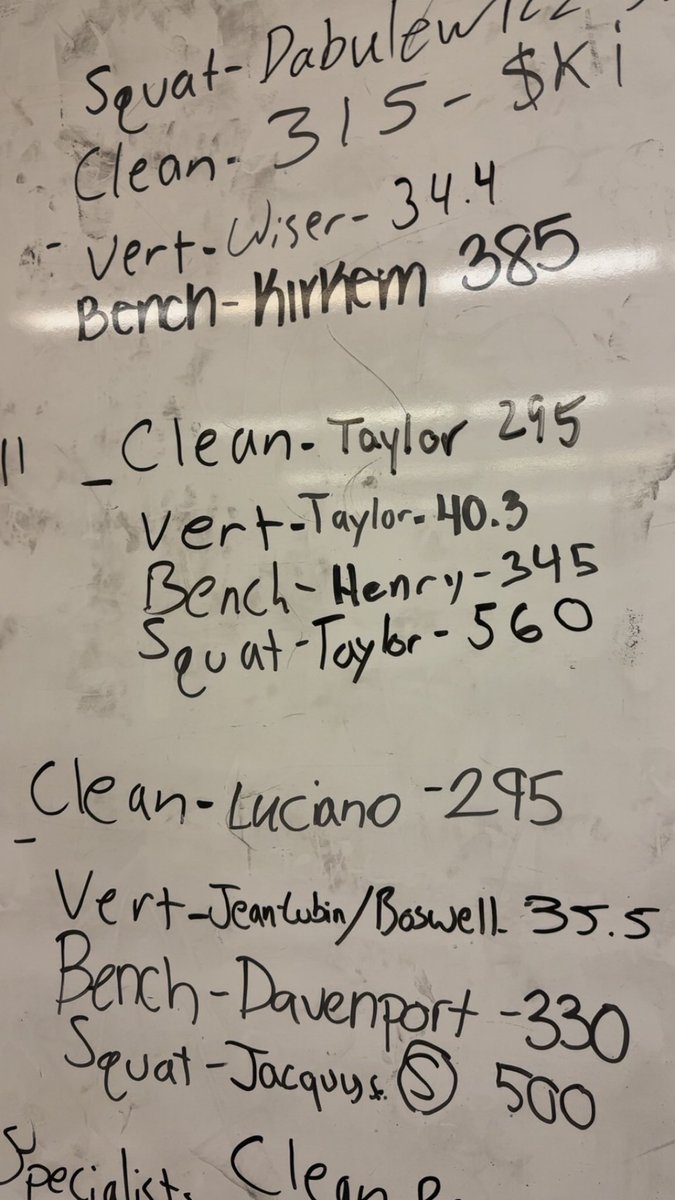 Squat- Dabulewicz
Clean- 315- $Ki
- Vert- Wiser- 34.4
Bench- Kirkem 385
11 - Clean- Taylor 295
Vert- Taylor- 40.3
Bench- Henry- 345
Squat- Taylor- 560
- Clean- Luciano -295
Vert- Jeanlubin/Boswell 35.5
Bench- Davenport -330
Squat- Jacquys. S 500
Specialist. Clean